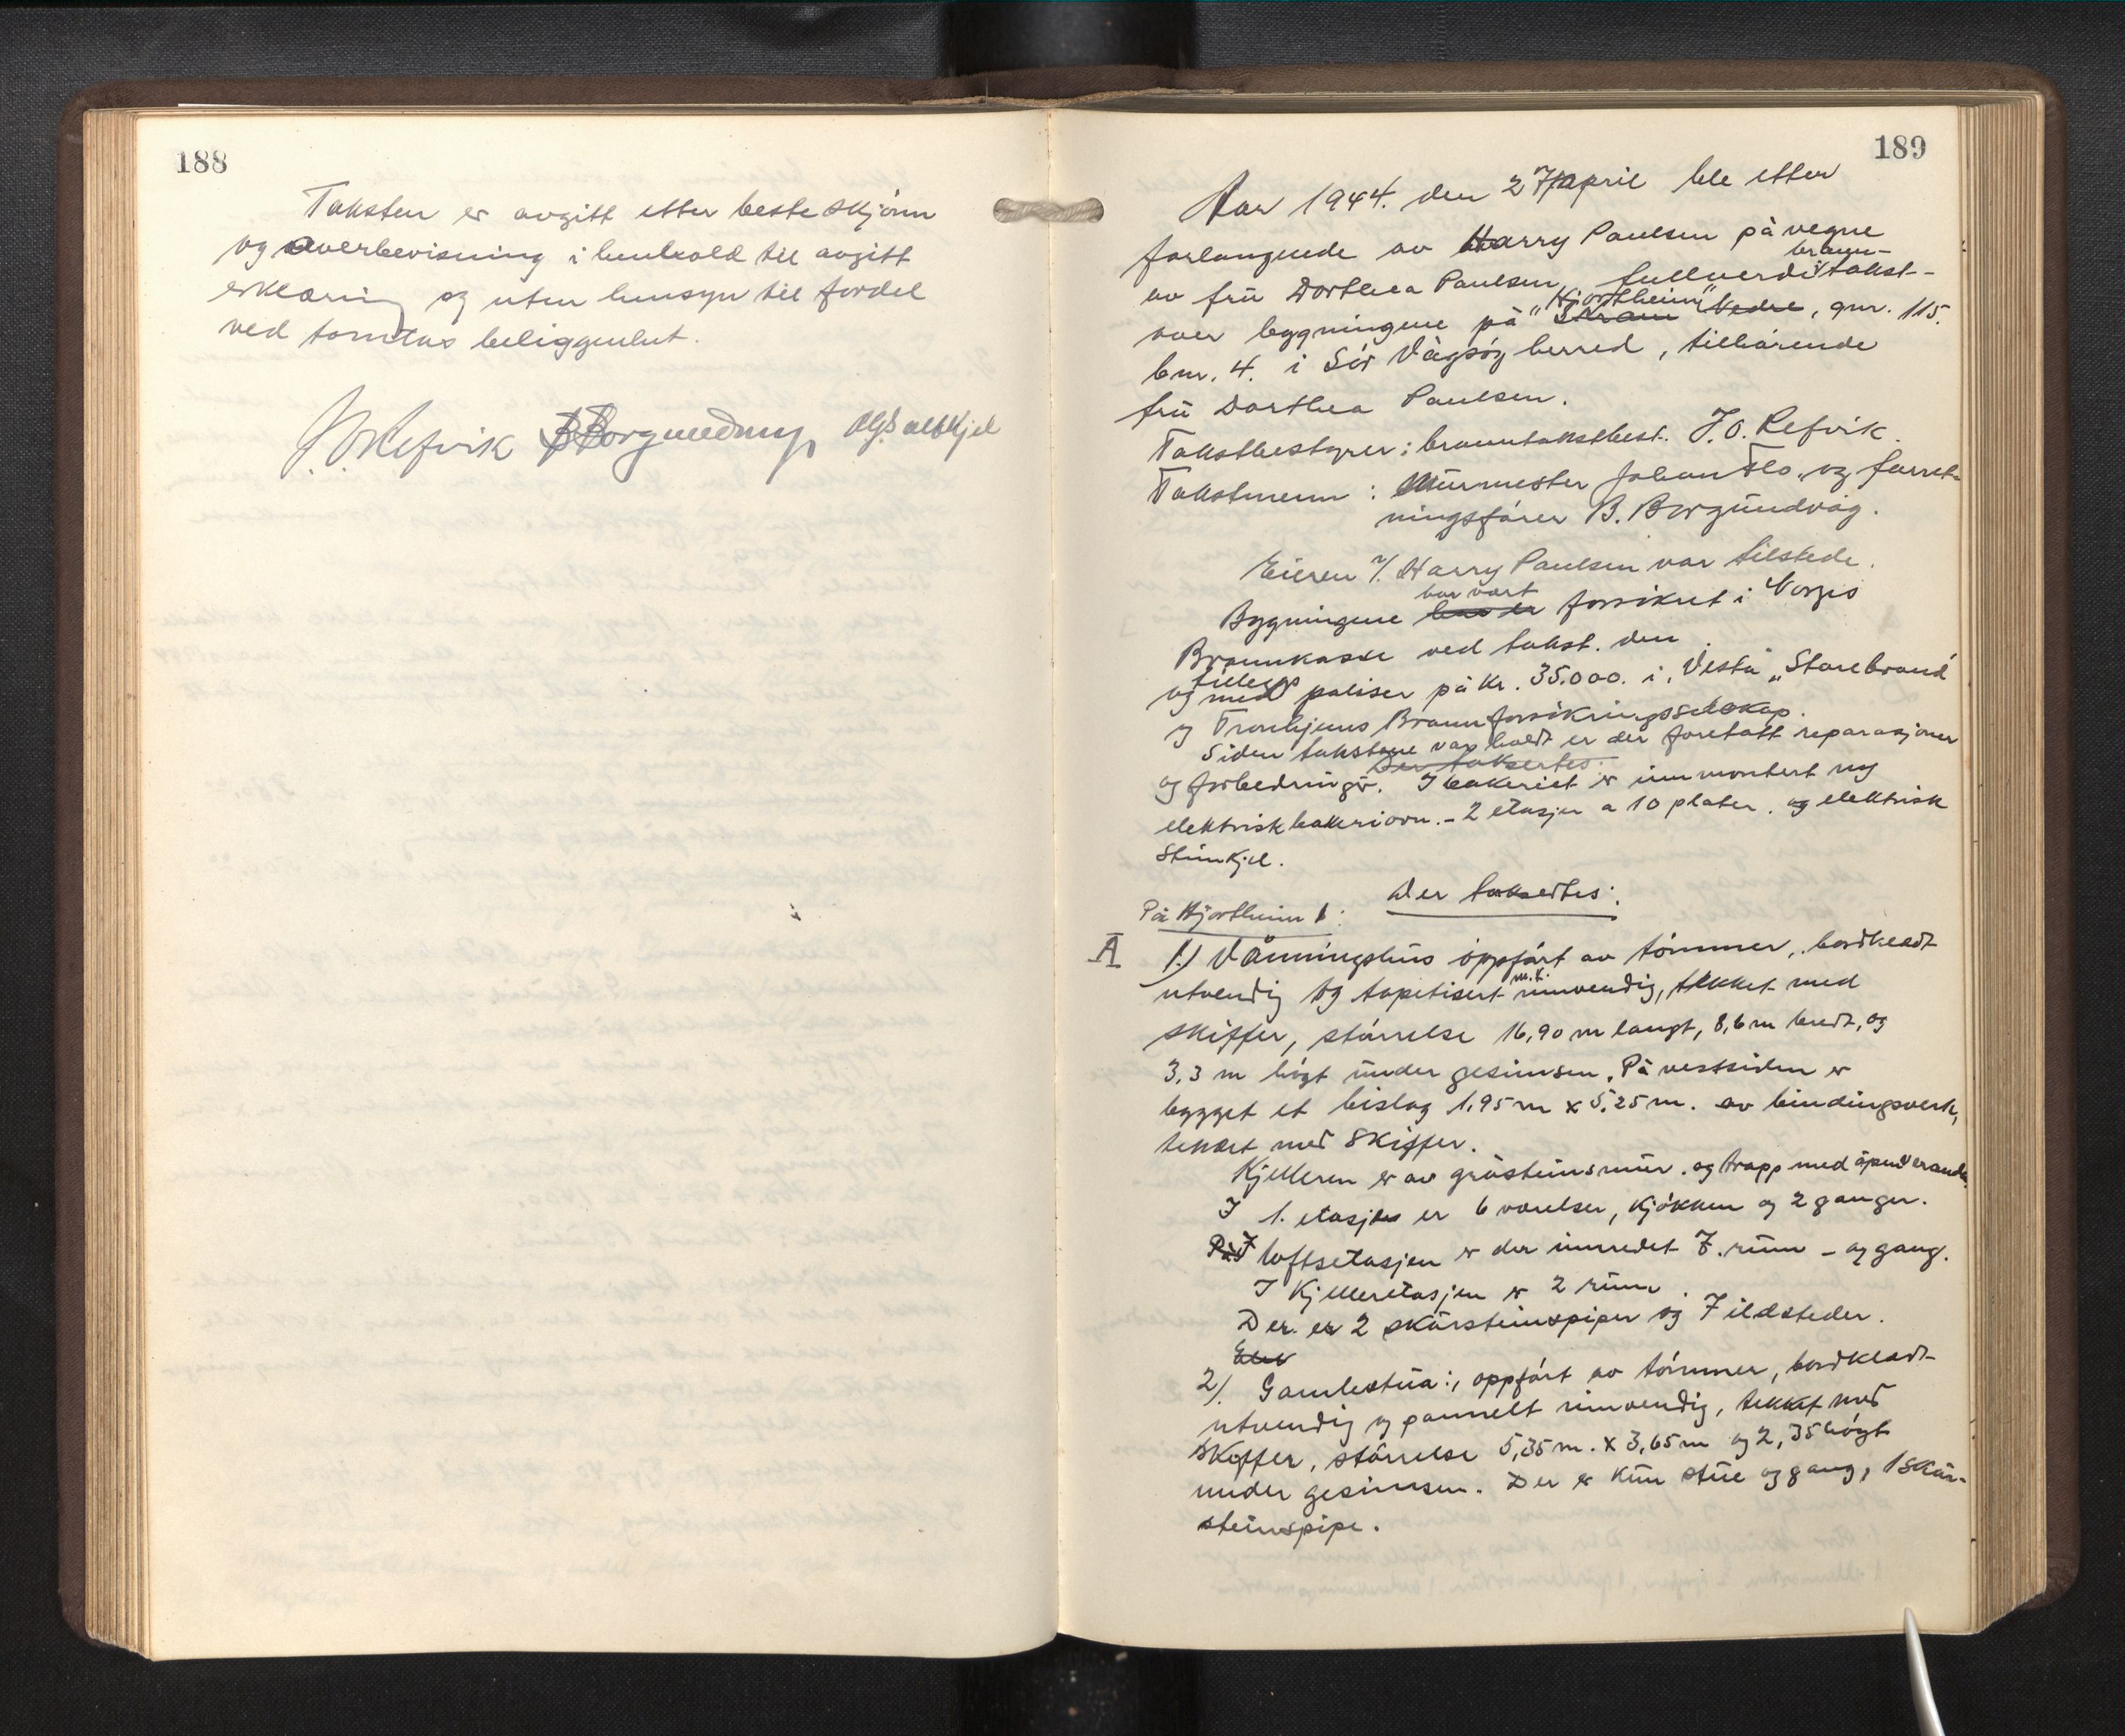 188
Taksten er avgitt etter beste skjønn
og overbevisning i henhold til avgitt
erklæring og uten hensyn til fordel
ved tomtens beliggenhet.
J. O. Refvik B Borgundvåg
189
Aar 1944. den 27 april ble etter
forlangende av Harry Paulsen på vegne
brann-
av frü Dorthea Paulsen, fullverditakst
"Hjortheim"
over bygningene på "Skram Nedre, gnr. 115.
bnr. 4. i Sör Vågsöy herred, tilhörende
frü Dorthea Paulsen.
Takstbestyrer: branntakstbest. J. O. Refvik.
Takstmenn: Mürmester Johan Flo, og forret-
ningsförer B. Borgündvåg.
Eieren v/. Harry Paulsen var tilstede.
har vært
Bygningene forsikret i Norges
Brannkasse ved takst. den .
tillegg
og med poliser på kr. 35.000. i "Vesta" "Storebrand"
og Tronhjems Brannforsikringsselskap.
Siden takstene var holdt er der foretatt reparasjoner
Der takseres:
og forbedringer. I bakeriet er innmontert ny
elektrisk bakeriovn. - 2 etasjer a 10 plater. og elektrisk
Stimkjel.
Der takseres:
På Hjortheim 1:
A 1.) Våningshüs oppfört av tömmer, bordkledt
m.k.
utvendig og tapetisert innvendig, tekket med
skiffer, störrelse 16,90 m langt, 8,6 m bredt, og
3,3 m högt ünder gesimsen. På vestsiden er
bygget et bislag 1,95 m x 5,25 m. av bindingsverk,
tekket med skiffer.
Kjelleren er av gråsteinsmür. og trapp med åpen veranda.
I 1. etasje er 6 værelser, kjökken og 2 ganger.
På I loftsetasjen er der innredet 7. rüm - og gang.
I Kjelleretasjen er 2 rüm.
Der er 2 skårsteinspiper og 7 ildsteder.
2). Gamlestüa:, oppfört av tömmer, bordkledt
utvendig og pannelt innvendig, tekket med
Skiffer, störrelse 5,35 m. x 3,65 m og 2,35 högt
under gesimsen. Der er kün stüe og gang, 1 skår-
steinspipe.